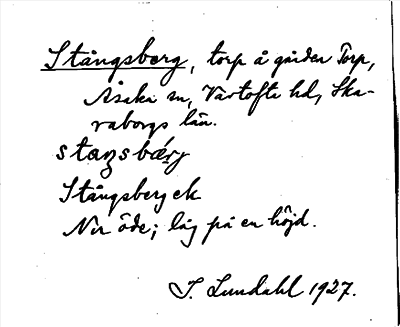 Stångsberg, torp å gården Torp,
Åsaka sn, Vartofta hd, Ska-
raborgs län.
staŋsbærj
Stångsberg ek
Nu öde; låg på en höjd.
I. Lundahl 1927.